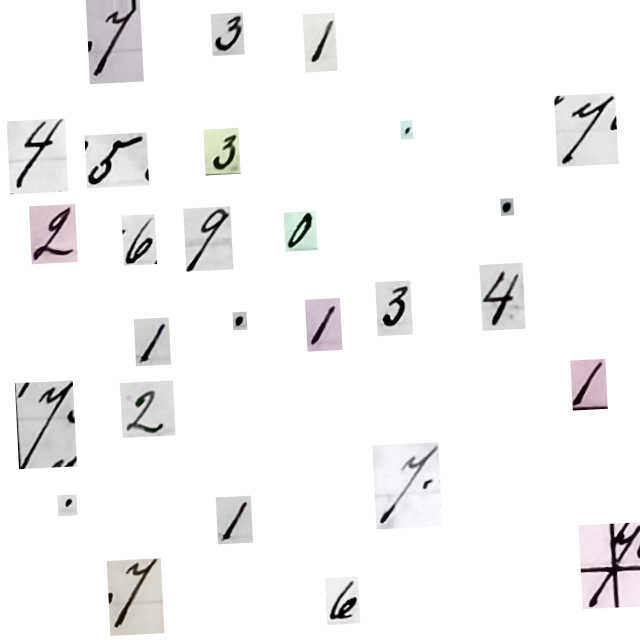 7 3 1
4 5 3 . 7
2 6 9 0 .
1 . 1 3 4
7 2 1
. 1 7
7 6 7